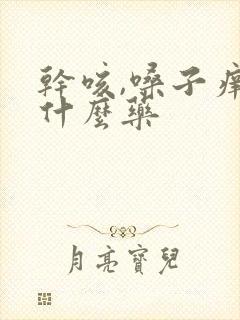 幹咳,嗓子癢
什麼藥
月亮寶兒